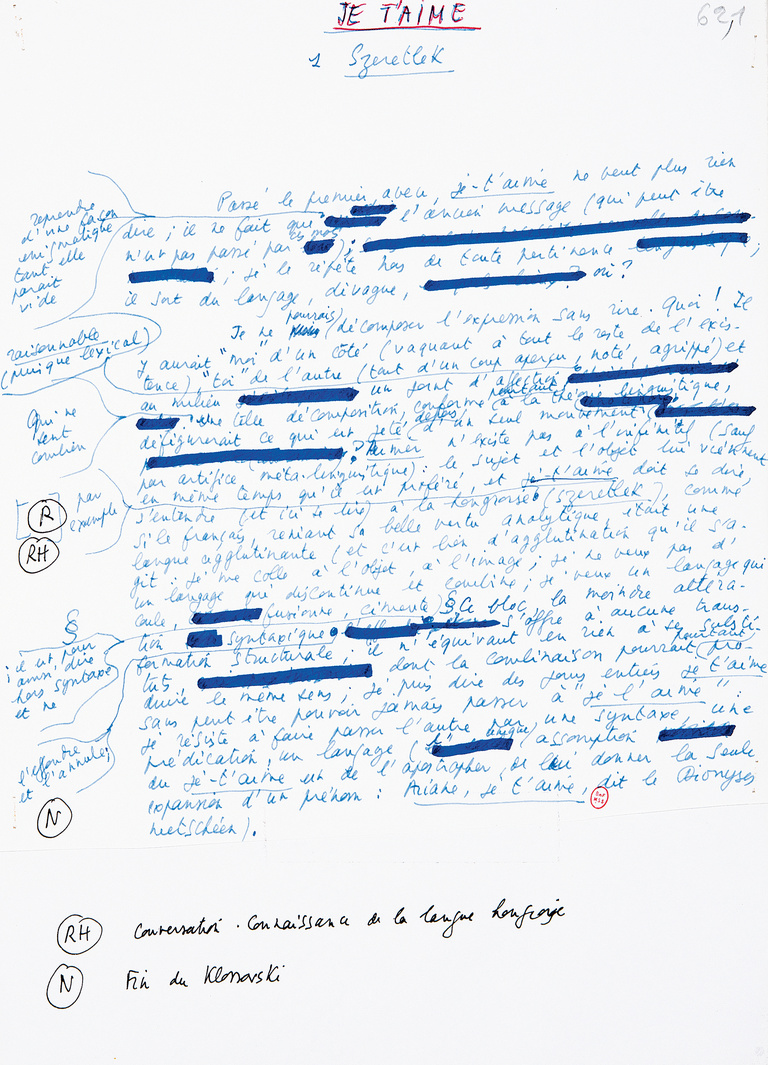 JE T'AIME
62,1
1 Szeretlek
Passé le premier aveu, je-t'aime ne veut plus rien
dire ; il ne fait que l'ancien message (qui peut être
n'est pas passé par ces mots) ;
; je le répète hors de toute pertinence ;
il sort du langage, divague, où ?
Je ne pourrais décomposer l'expression sans rire. Quoi ! Il
y aurait "moi" d'un côté (vaquant à tout le reste de l'exis-
tence), "toi" de l'autre (tant d'un coup aperçu, noté, agrippé) et
au milieu un joint d'affection
; une telle décomposition, conforme à la théorie linguistique,
défigurerait ce qui est jeté (d'un seul mouvement)
? Aimer n'existe pas à l'infinitif (sauf
par artifice méta-linguistique) : le sujet et l'objet lui viennent
en même temps qu'il est proféré, et je-t'aime doit se dire,
s'entendre (et ici se lire) à la hongroise (szeretlek), comme
si le français, reniant sa belle vertu analytique, était une
langue agglutinante (et c'est bien d'agglutination qu'il s'a-
git : je me colle à l'objet, à l'image ; je ne veux pas d'
un langage qui discontinue et combine ; je veux un langage qui
coule, fusionne, cimente) § Ce bloc, la moindre altéra-
tion syntaxique s'offre à aucune trans-
formation structurale ; il n'équivaut en rien à ses substi-
tuts, dont la combinaison pourrait pourtant pro-
duire le même sens ; je puis dire des jours entiers je t'aime
sans peut être pouvoir jamais passer à "je l'aime" :
je résiste à faire passer l'autre par une syntaxe, une
prédication, un langage (l'unique assomption
du je-t'aime est de l'apostropher, de lui donner la seule
expansion d'un prénom : Ariane, je t'aime, dit le Dionysos
nietschéen).
reprendre
d'une façon
énigmatique
tant elle
paraît
vide
raisonnable
(puisque lexical)
Qui ne
sent
combien
par
exemple
R
RH
§
il est, pour
ainsi dire
hors syntaxe
et ne
l'effondre
et l'annule ;
N
RH Conversation. Connaissance de la langue hongroise
N Fin du Klossovski